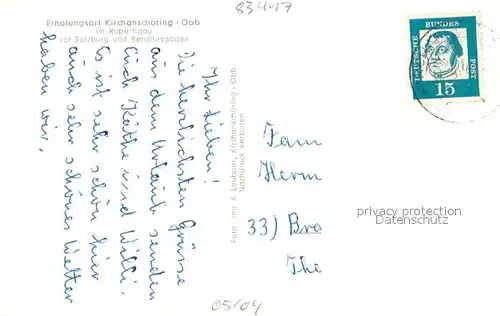 83417
Erholungsort Kirchanschöring - Obb
im Rupertigau
vor Salzburg und Berchtesgaden
Ihr Lieben!
Die herzlichsten Grüsse
aus dem Urlaub senden
Euch Käthe und Willi.
Es ist sehr schön hier
auch sehr schönes Wetter
haben wir.
Foto: Ing. A. Leubner, Kirchanschöring - Obb.
Nachdruck verboten
DEUTSCHE
BUNDES
POST
15
Fam
Herm
33) Bra
The
privacy protection
Datenschutz
05/04